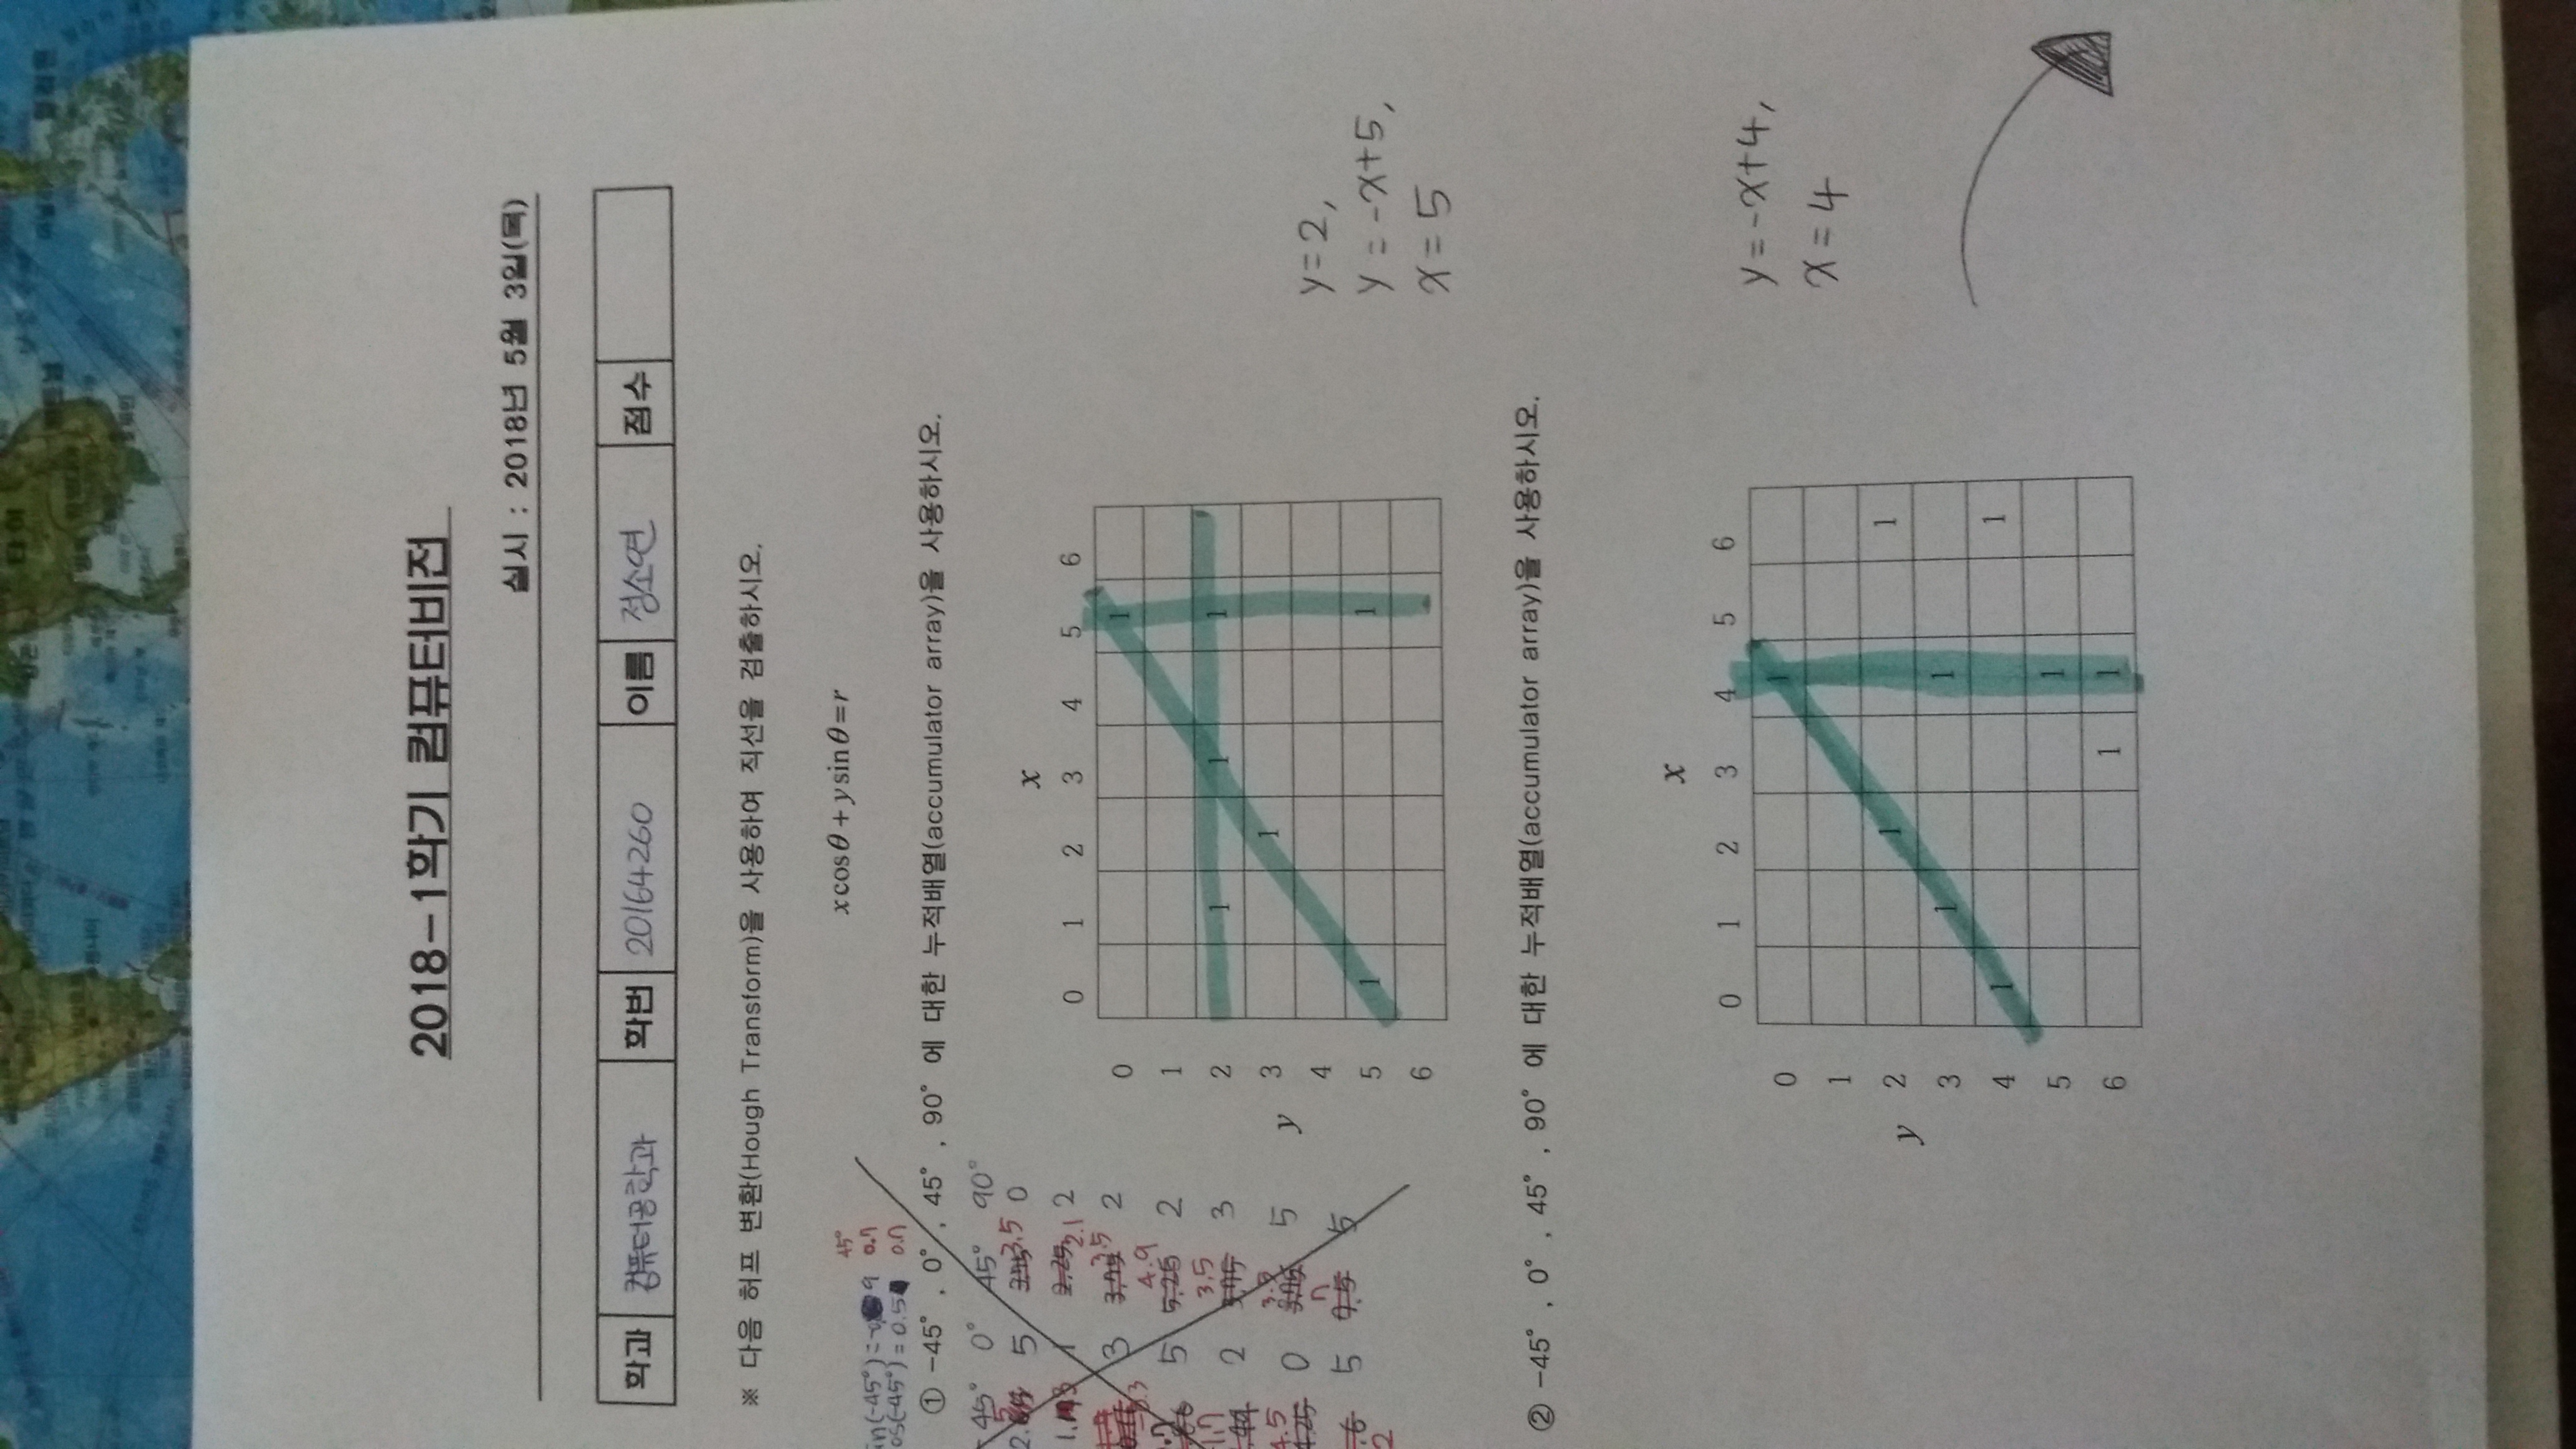 타이
2018-1학기 컴퓨터비전
실시 : 2018년 5월 3일(목)
학과 컴퓨터공학과 학번 20164260 이름 정소연 점수
※ 다음 허프 변환(Hough Transform)을 사용하여 직선을 검출하시오.
x cos θ + y sin θ = r
45°
in(-45°)= 9 0.7
os(-45°) = 0.5 0.7
① -45° , 0° , 45° , 90° 에 대한 누적배열(accumulator array)을 사용하시오.
-45° 0° 45° 90°
5 3.5 0
1 2.25 2.1 2
3 3.75 3.5 2
4.9
5 5.25 2
3.5
2 3.75 3
4.5
0 3.75 5
7
5 5
2
x
0 1 2 3 4 5 6
0 1
1
2 1 1 1
3 1
y
4
5 1 1
6
y=2,
y = -x+5,
x = 5
② -45° , 0° , 45° , 90° 에 대한 누적배열(accumulator array)을 사용하시오.
x
0 1 2 3 4 5 6
0 1
1
y 2 1 1
3 1 1
4 1 1
5 1
6 1 1
y = -x+4,
x = 4